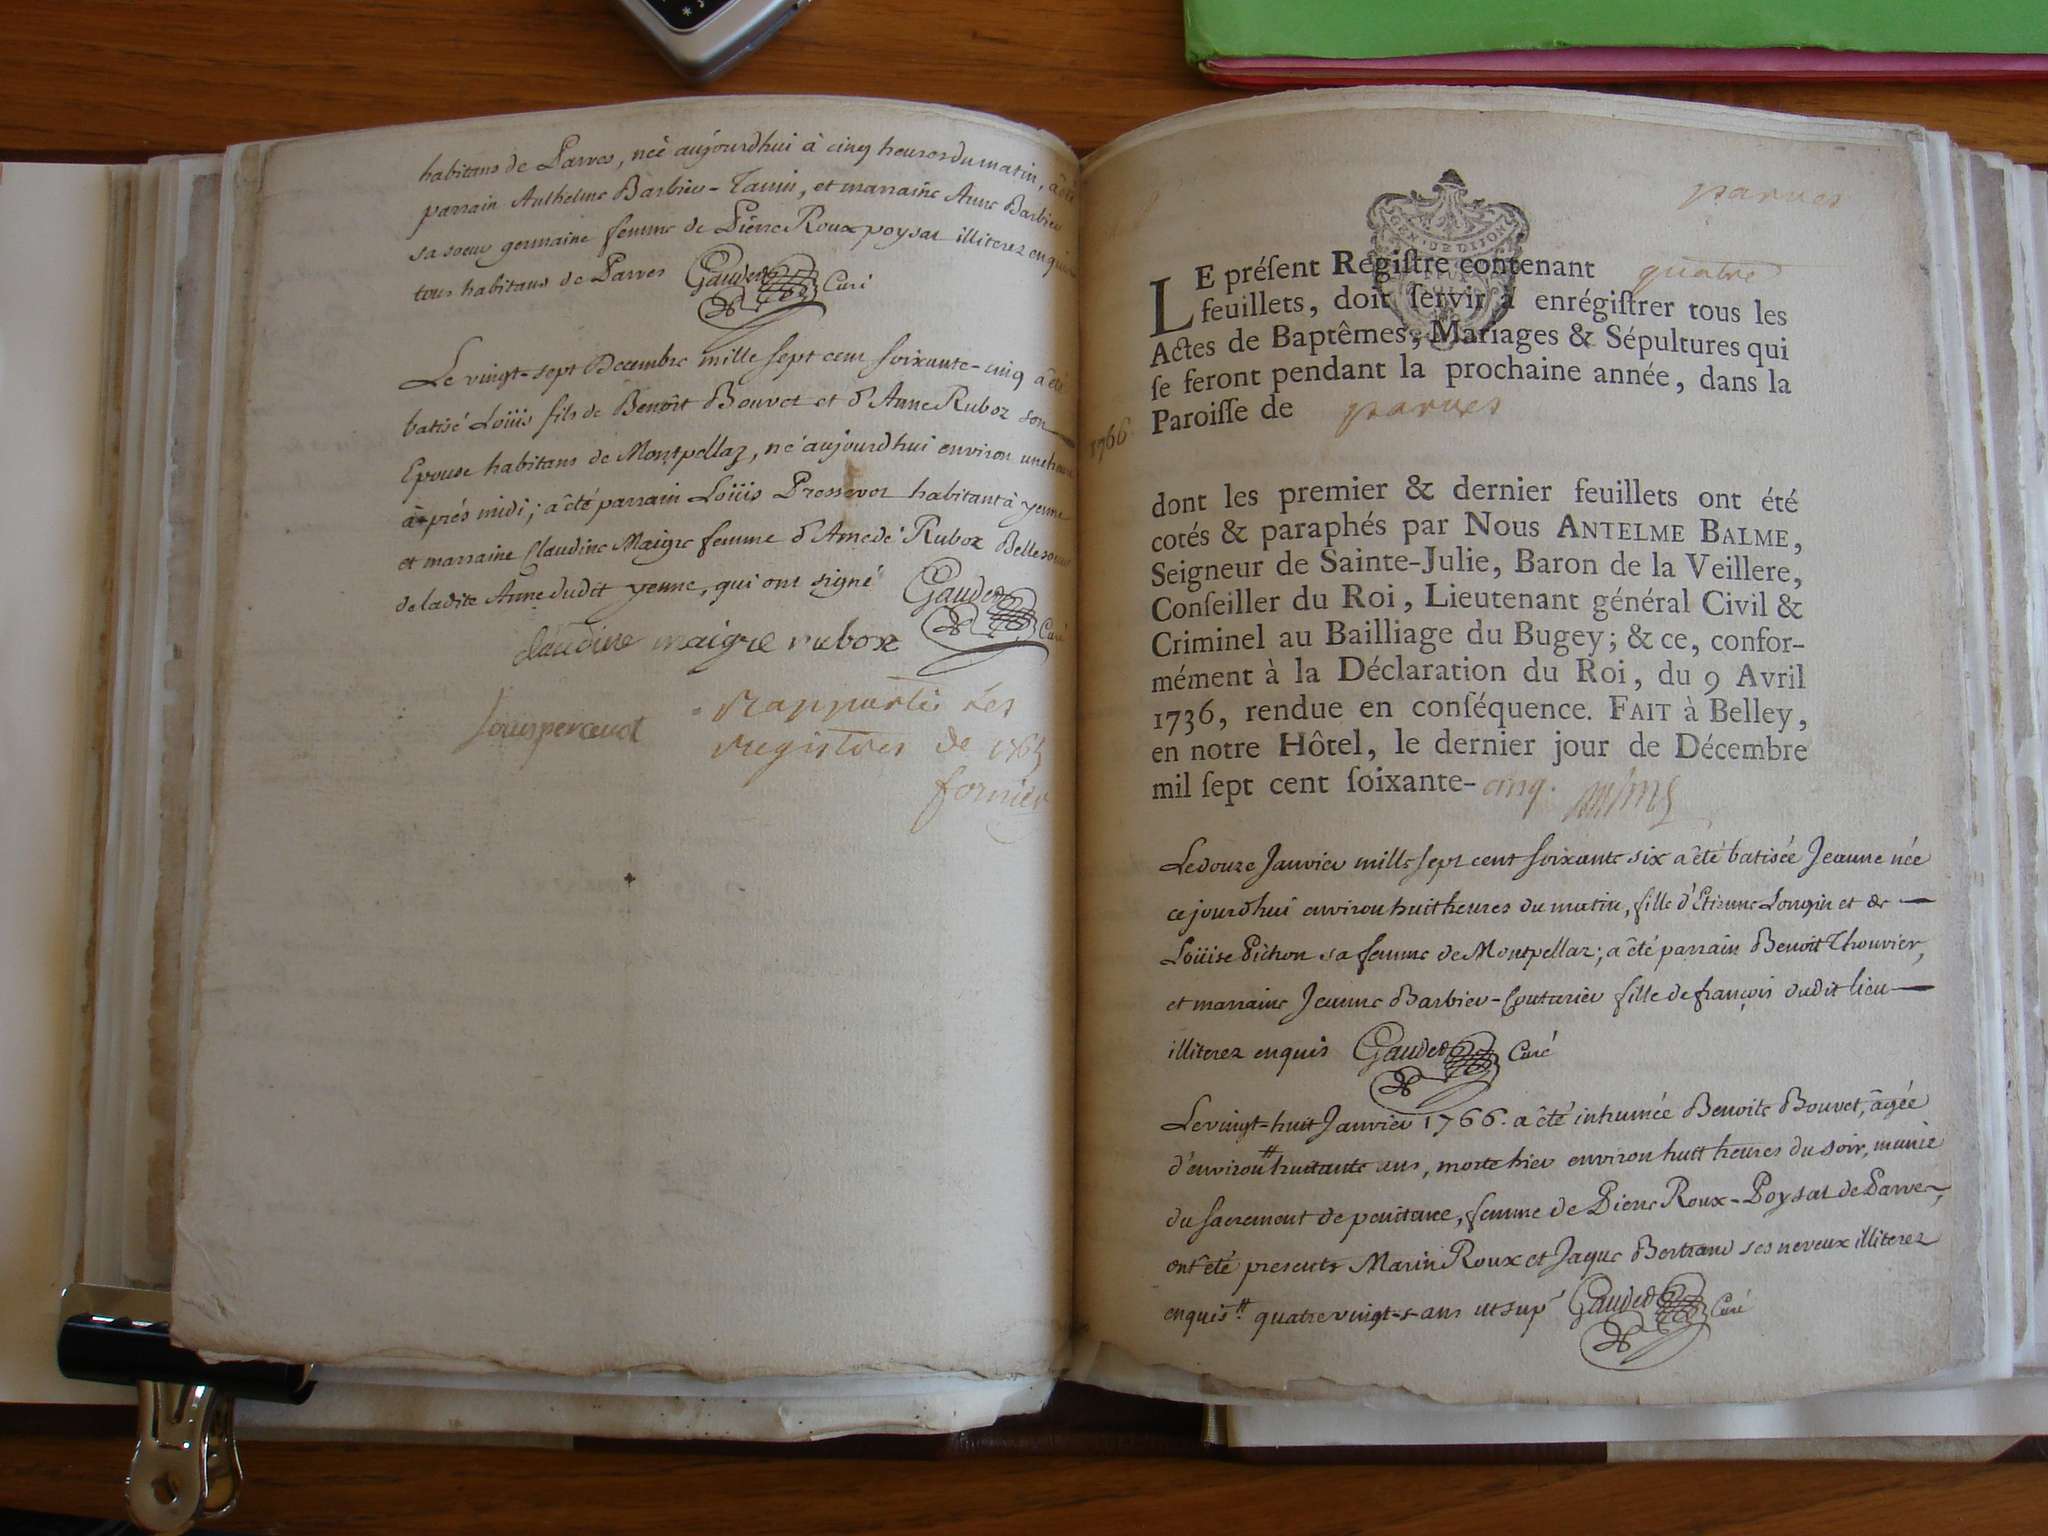 habitans de Parves, née aujourdhui à cinq heures du matin, a été
parrain Anthelme Barbier-Tamin, et marraine Anne Barbier
sa soeur germaine femme de Pierre Roux poysat illiterez enquis
tous habitans de Parves Gaudet Curé
Le vingt-sept Decembre mille sept cent soixante-cinq a été
batisé Loüis fils de Benoît Bouvet et d'Anne Rubox son
Epouse habitans de Montpellaz, né aujourdhui environ une heure
après midi; a été parrain Loüis Pressevot habitant à yenne
et marraine Claudine Maigre femme d'Amedé Rubox Bellesoeur
de ladite Anne dudit yenne, qui ont signé Gaudet
Curé
claudine maigre rubox
rapporté les
registres de 1765
fornier
parves
GEN·DE DIJON
LE présent Registre contenant quatre
feuillets, doit servir à enrégistrer tous les
Actes de Baptêmes, Mariages & Sépultures qui
se feront pendant la prochaine année, dans la
Paroisse de parves
1766
dont les premier & dernier feuillets ont été
cotés & paraphés par Nous ANTELME BALME,
Seigneur de Sainte-Julie, Baron de la Veillere,
Conseiller du Roi, Lieutenant général Civil &
Criminel au Bailliage du Bugey; & ce, confor-
mément à la Déclaration du Roi, du 9 Avril
1736, rendue en conséquence. FAIT à Belley,
en notre Hôtel, le dernier jour de Décembre
mil sept cent soixante-cinq.
Le douze Janvier mille sept cent soixante six a été batisée Jeanne née
ce jourdhui environ huit heures du matin, fille d'Etienne Longin et de
Loüise Pichon sa femme de Montpellaz; a été parrain Benoit Thouvier,
et marraine Jeanne Barbier-Couturier fille de françois dudit lieu
illiterez enquis Gaudet Curé
Le vingt-huit Janvier 1766. a été inhumée Benoite Bouvet, âgée
d'environ # huitante ans, morte hier environ huit heures du soir, munie
du sacrement de penitence, femme de Pierre Roux-Poysat de Parves,
ont été presents Marin Roux et Jaque Bertrand ses neveux illiterez
enquis # quatrevingt-s-ans ut sup' Gaudet Curé